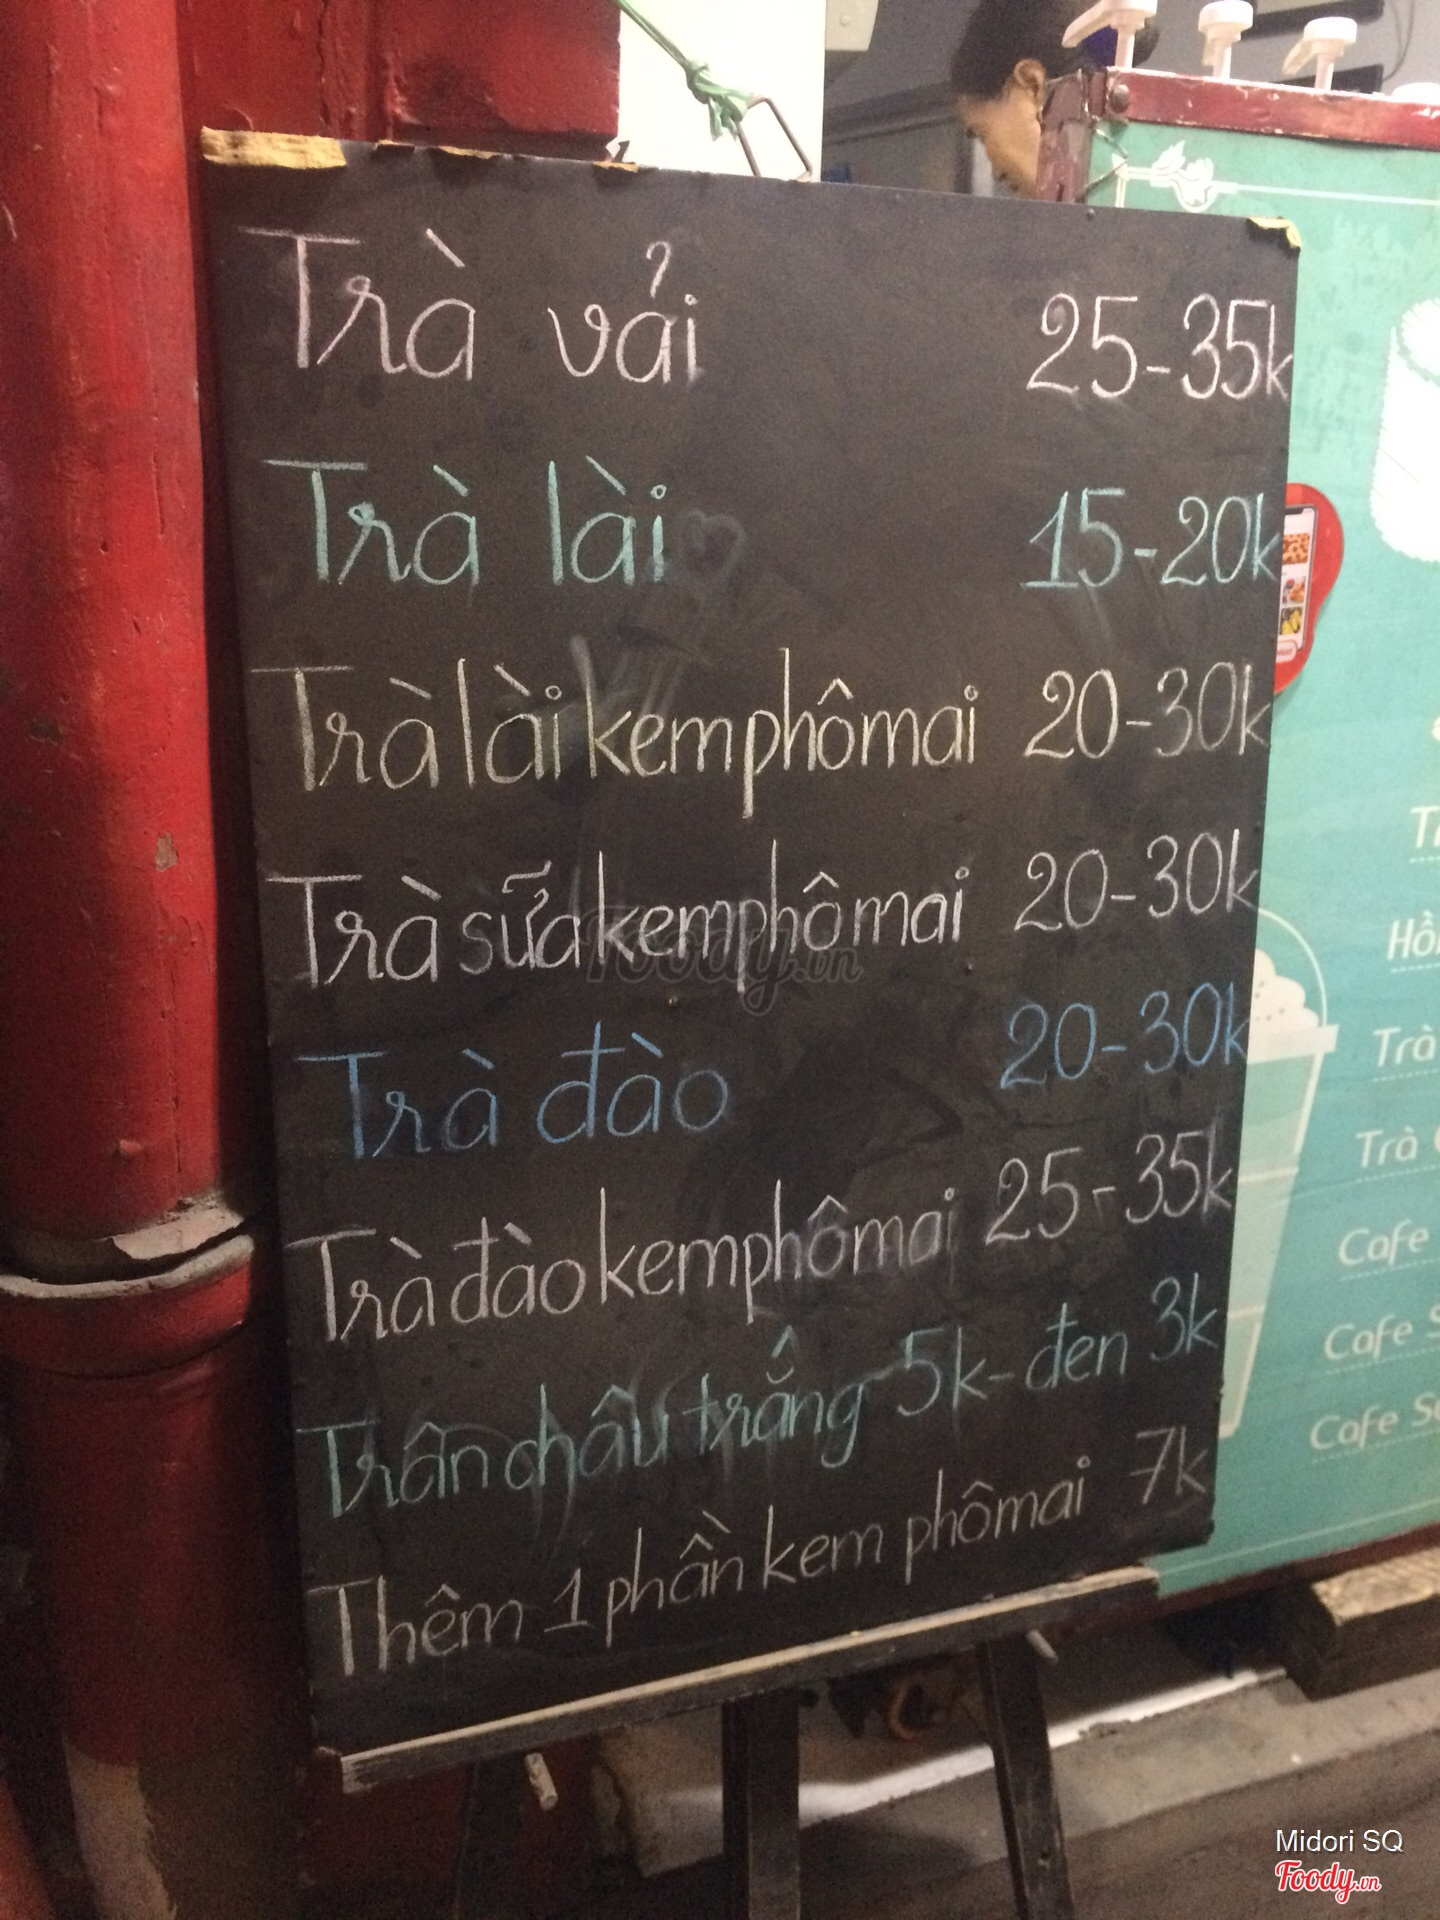 Trà vải 25-35k
Trà lài 15-20k
Trà lài kem phômai 20-30k
Trà sữa kem phômai 20-30k
Trà đào 20-30k
Trà đào kem phômai 25-35k
Trân châu trắng 5k- đen 3k
Thêm 1 phần kem phômai 7k
Trà
Trà
Cafe
Cafe
Cafe
Foody.vn
Midori SQ
Foody.vn